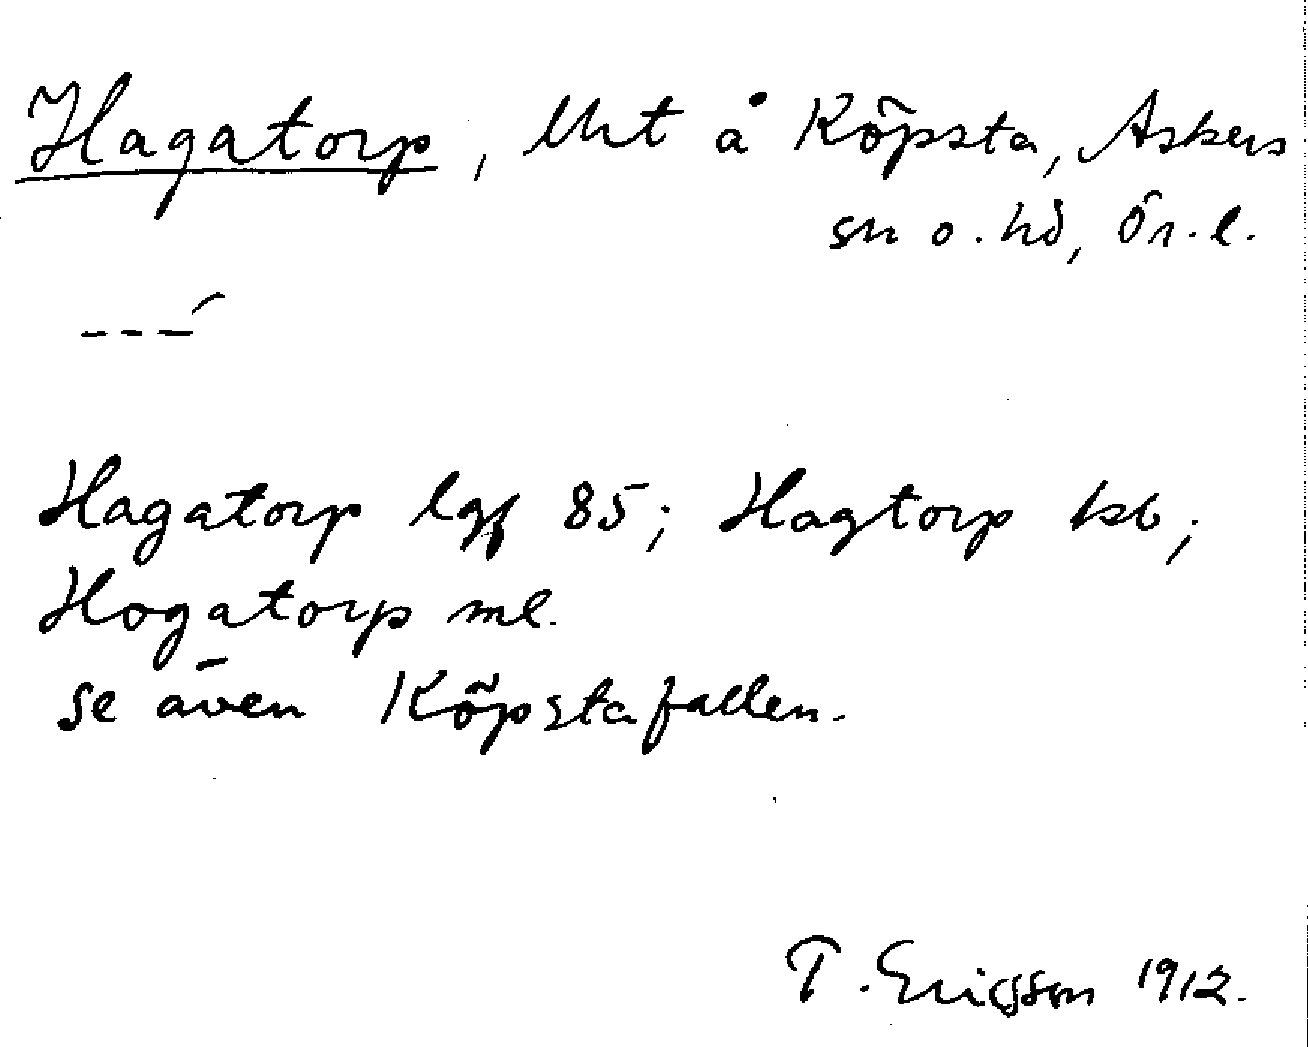 Hagatorp, lht å Köpsta, Askers
sn o. hd, Ör. l.
---´
Hagatorp lgf 85; Hagtorp kb;
Hogatorp ml.
se även Köpstafallen.
T. Ericsson 1912.